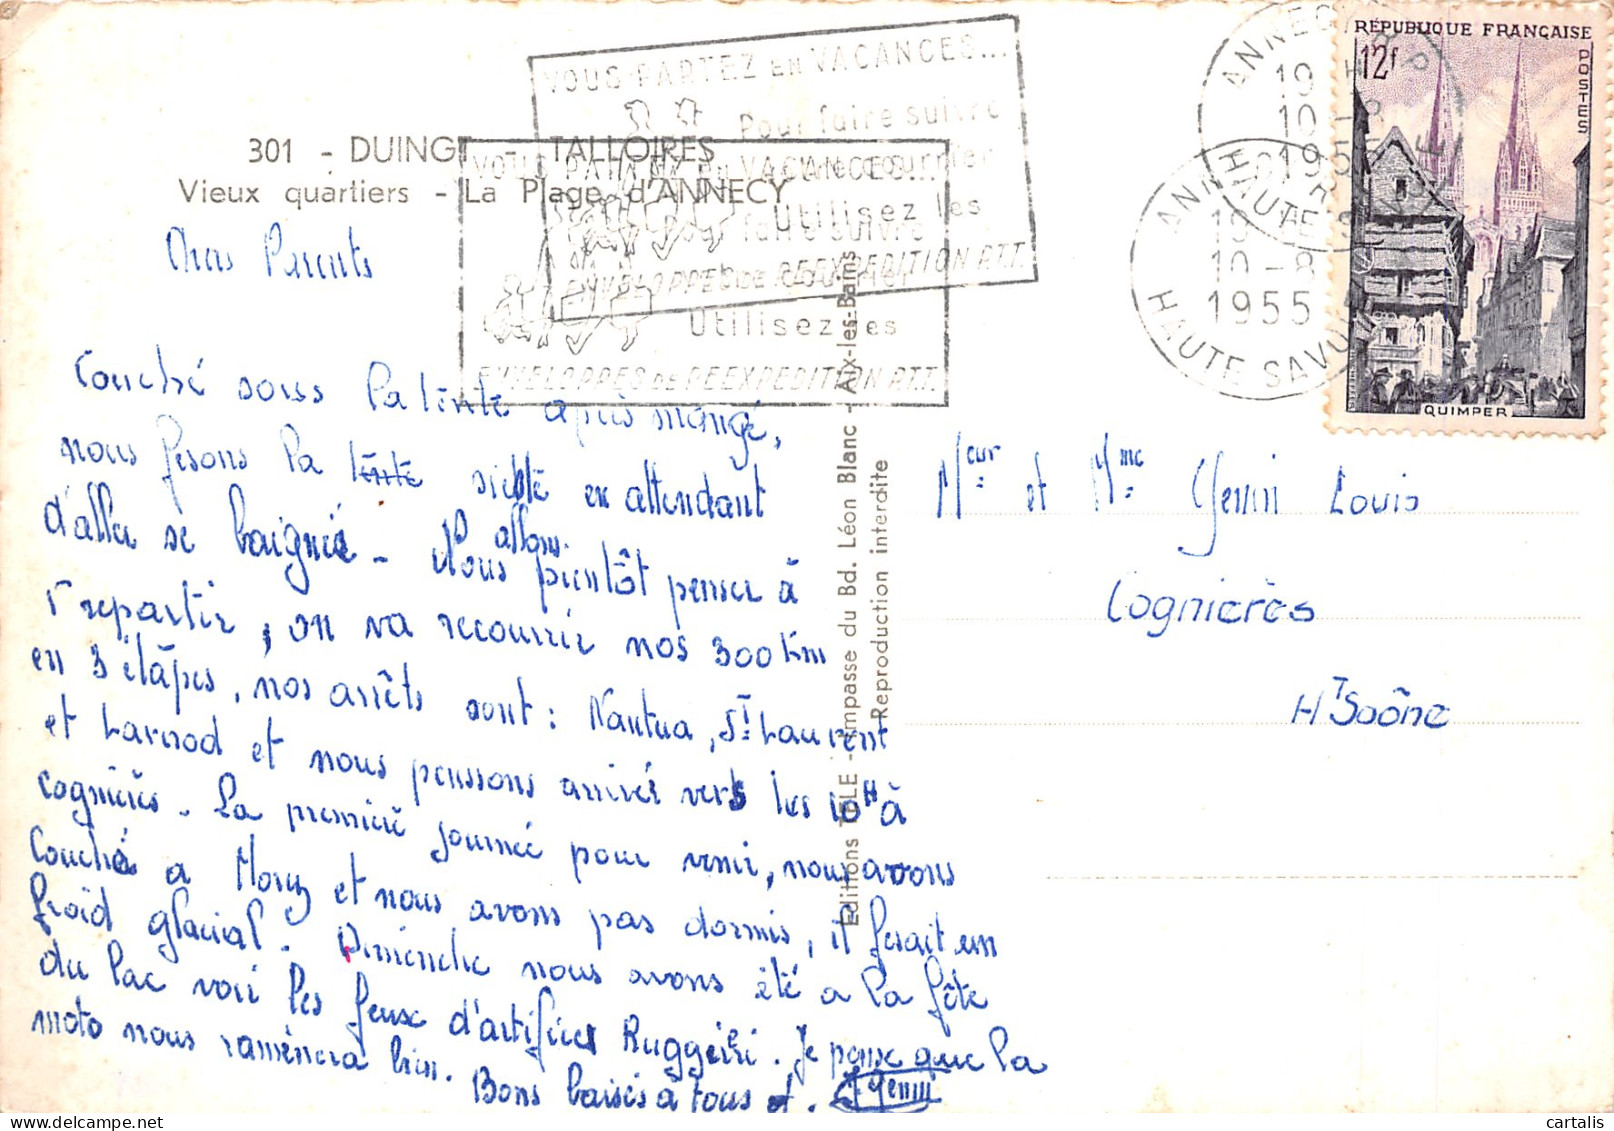 301 - DUINGT - TALLOIRES
Vieux quartiers - La Plage d'ANNECY
VOUS PARTEZ EN VACANCES...
Pour faire suivre
votre courrier
Utilisez les
ENVELOPPES DE REEXPEDITION P.T.T.
VOUS PARTEZ EN VACANCES...
Pour faire suivre
votre courrier
Utilisez les
ENVELOPPES DE REEXPEDITION P.T.T.
ANNECY R.P.
19 H
10 - 8
1955
HAUTE SAVOIE
ANNECY R.P.
19 H
10 - 8
1955
HAUTE SAVOIE
RÉPUBLIQUE FRANÇAISE
12f
POSTES
QUIMPER
Chers Parents
Couché sous la tente après mangé,
nous fesons la tente sieste en attendant
d'aller se baignée - Nous allons pientôt penser à
repartir, on va recourrir nos 300 km
en 3 étâpes, nos arrêts sont : Nantua, St Laurent
et Larnod et nous penssons arriver vers les 10H à
Cognières. La première journée pour venir, nous avons
Couché a Morez et nous avons pas dormis, il fesait un
froid glacial. Dimenche nous avons été a la fête
du lac voir les feux d'artifices Ruggeiri. Je pense que la
moto nous ramènera bien. Bons baisés a tous et. Genin
Editions TELE - Impasse du Bd. Léon Blanc - Aix-les-Bains
Reproduction interdite
Meur et Mme Genin Louis
Cognières
HT Saône